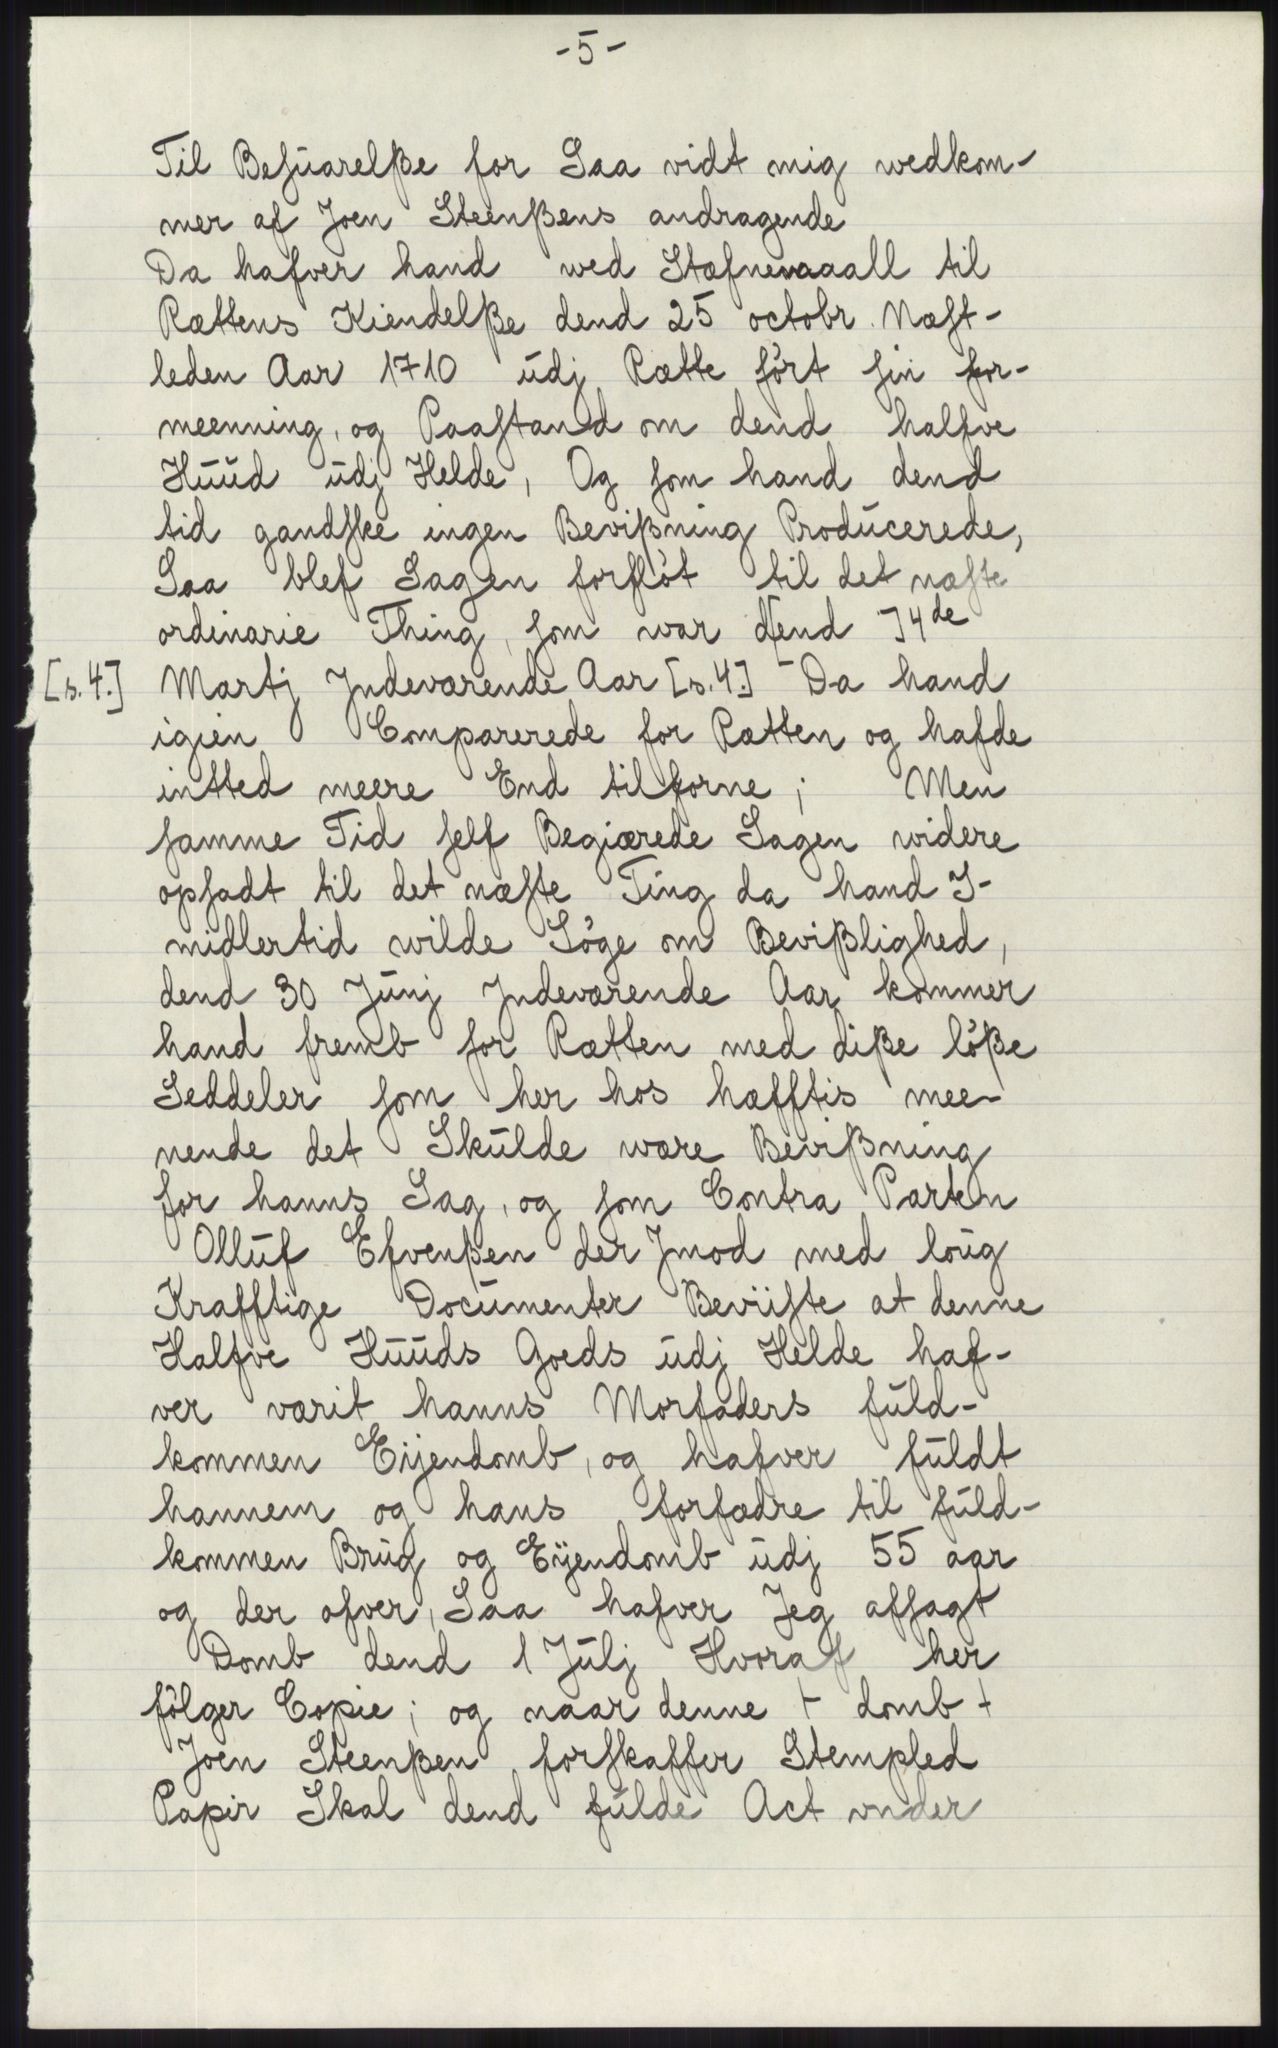 -5-
Til Besuarelße for Saa vidt mig wedkom-
mer af Joen Steenßens andragende
Da hafver hand wed Stæfnemaall til
Rættens Kiendelße dend 25 octobr. Næst-
leden Aar 1710 udj Rætte ført sin for-
meenning, og Paastand om dend halfve
Huud udj Helde, Og som hand dend
tid gandske ingen Bevißning Producerede,
Saa blef Sagen forfløt til det næste
ordinarie Thing, som war dend 14de
[s.4.] Martj Jndeværende Aar [s.4.] Da hand
igien Comparerede for Rætten og hafde
intted meere End tilforne; Men
samme Tid self Begiærede Sagen widere
opsadt til det næste Ting da hand I-
midlertid wilde Søge om Bevißlighed,
dend 30 Junj Jndeværende Aar kommer
hand fremb for Rætten med diße løße
Seddeler som her hos hæfftis mee-
nende det Skulde wære Bevißning
for hanns Sag, og som Contra Parten
Olluf Efvenßen der Jmod med loug
Krafftige Documenter Beviiste at denne
Halfve Huuds Goeds udj Helde haf-
ver værit hanns Morfaders fuld-
kommen Eijendomb, og hafver fuldt
hannem og hans forfædre til fuld-
kommen Brug og Eijendomb udj 55 aar
og der ofver, Saa hafver Jeg afsagt
Domb dend 1 Julj Hvoraf her
følger Copie; og naar denne + domb +
Joen Steenßen forskaffer Stempled
Papir Skal dend fulde Act vnder